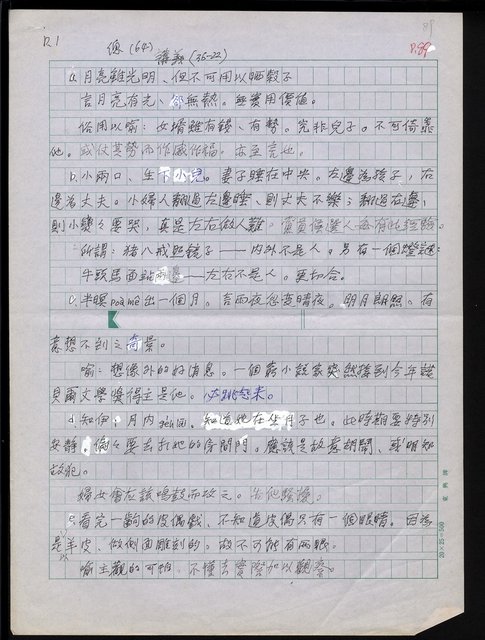 R1
總(64) 講義(36-22)
89
P.89
a.月亮雖光明、但不可用以晒穀子
言月亮有光、卻無熱。無實用價值。
俗用以喻：女婿雖有錢、有勢。究非兒子。不可倚靠
他。或仗其勢而作威作福。亦至完也。
b.小兩口、生下小兒。妻子睡在中央。左邊為孩子，右
邊為丈夫。小婦人翻過左邊睡、則丈夫不樂；翻過右邊，
則小孌々要哭，真是左右做人難。黨員候選人每有此經驗。
所謂：豬八戒照镜子——内外不是人。另有一個燈謎：
牛頭馬面站兩邊——左右不是人。更切合。
c.半暝 出一個月。言雨夜忽变晴夜。明月朗照。有
意想不到之奇景。
喻：想像外的好消息。一個舊小說家突然接到今年諾
貝爾文學獎得主是他。必跳起來。
d.知伊：月内 間。知道她在坐月子也。此時期要特別
安静。偏々要去扒她的房間門。應該是故意胡鬧、或明知
故犯。
婦女會应該鳴鼓而攻之。告他騷擾。
e.看完一齣的皮偶戲、不知道皮偶只有一個眼睛。因為
是以羊皮、做側面雕刻的。故不可能有兩眼。
喻主觀的可怕，不懂去實際加以觀察。
20×25=500